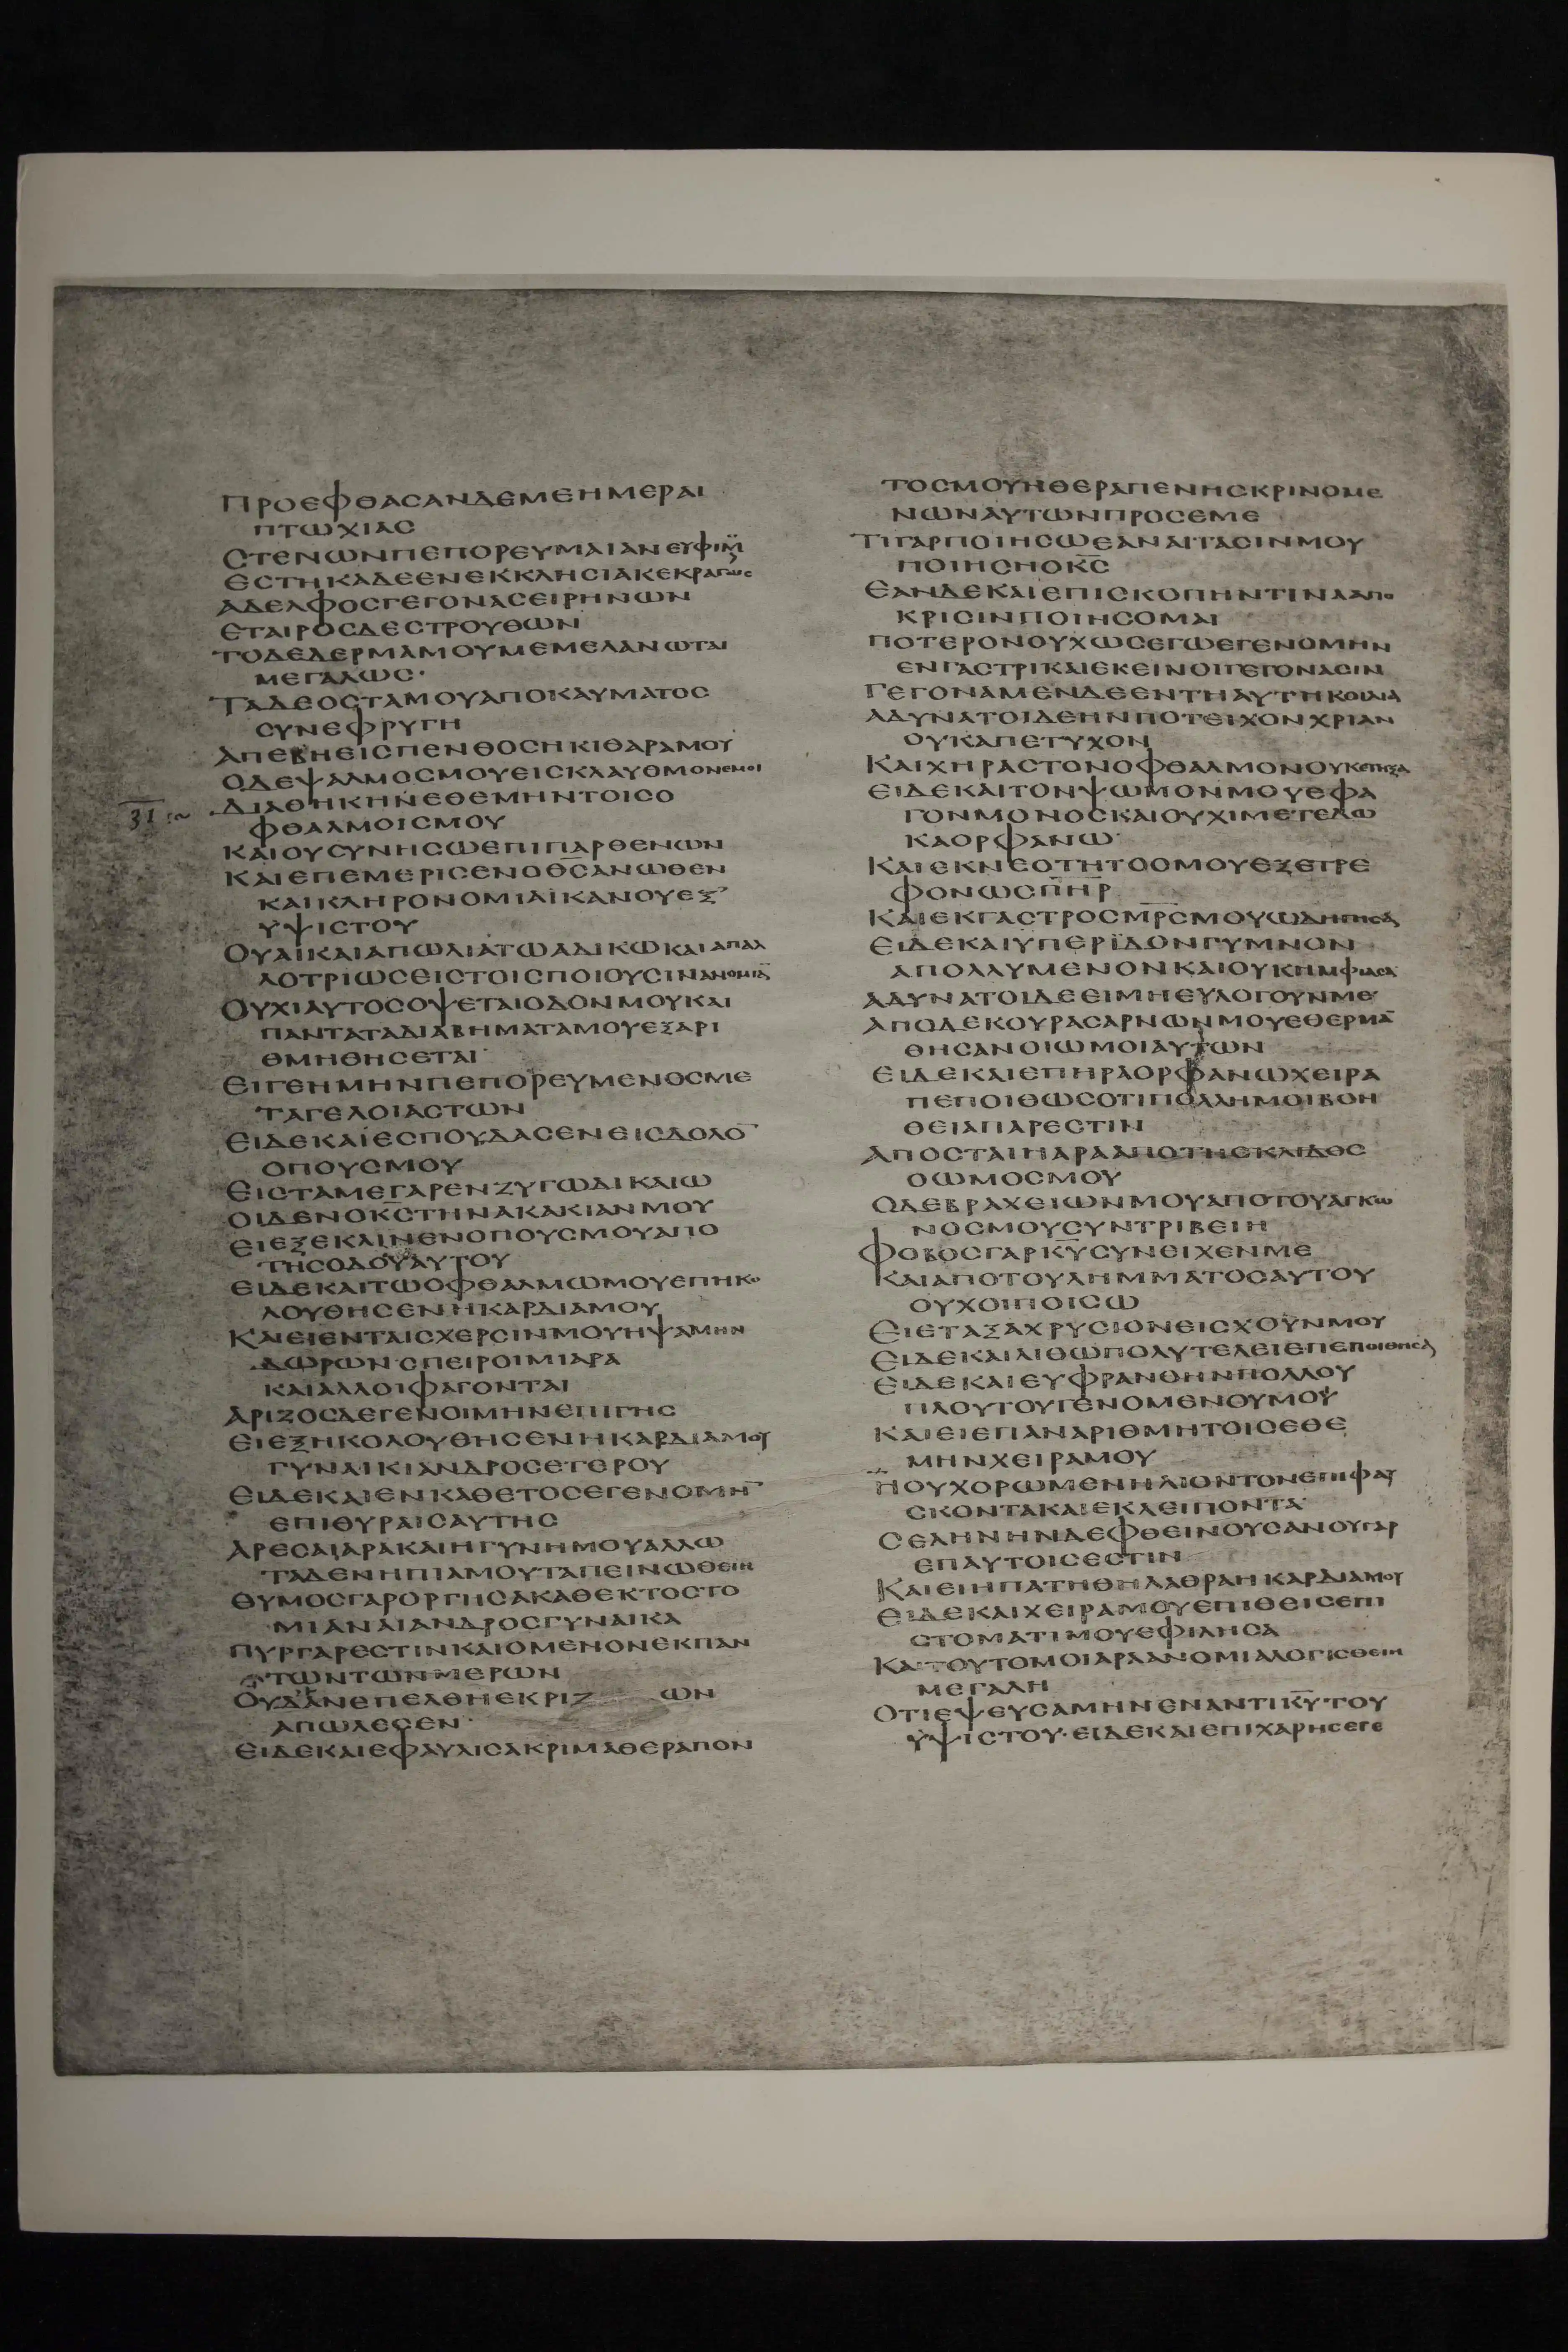 ΠΡΟΕΦΘΑСΑΝΔΕΜΕΗΜΕΡΑΙ
ΠΤΩΧΙΑС
СΤΕΝΩΝΠΕΠΟΡΕΥΜΑΙΑΝΕΥΦΙΜΟΥ
ΕСΤΗΚΑΔΕΕΝΕΚΚΛΗСΙΑΚΕΚΡΑΓΩС
ΑΔΕΛΦΟСΓΕΓΟΝΑСΕΙΡΗΝΩΝ
ΕΤΑΙΡΟСΔΕСΤΡΟΥΘΩΝ
ΤΟΔΕΔΕΡΜΑΜΟΥΜΕΜΕΛΑΝΩΤΑΙ
ΜΕΓΑΛΩС·
ΤΑΔΕΟСΤΑΜΟΥΑΠΟΚΑΥΜΑΤΟС
СΥΝΕΦΡΥΓΗ
ΑΠΕΒΗΕΙСΠΕΝΘΟСΗΚΙΘΑΡΑΜΟΥ
ΟΔΕΨΑΛΜΟСΜΟΥΕΙСΚΛΑΥΘΜΟΝΕΜΟΙ
31 ΔΙΑΘΗΚΗΝΕΘΕΜΗΝΤΟΙСΟ
ΦΘΑΛΜΟΙСΜΟΥ
ΚΑΙΟΥСΥΝΗСΩΕΠΙΠΑΡΘΕΝΩΝ
ΚΑΙΕΠΕΜΕΡΙСΕΝΟΘ̅С̅ΑΝΩΘΕΝ
ΚΑΙΚΛΗΡΟΝΟΜΙΑΙΚΑΝΟΥΕΞ
ΥΨΙСΤΟΥ
ΟΥΑΙΚΑΙΑΠΩΛΙΑΤΩΑΔΙΚΩΚΑΙΑΠΑΛ
ΛΟΤΡΙΩСΕΙСΤΟΙСΠΟΙΟΥСΙΝΑΝΟΜΙΑ̅
ΟΥΧΙΑΥΤΟСΟΨΕΤΑΙΟΔΟΝΜΟΥΚΑΙ
ΠΑΝΤΑΤΑΔΙΑΒΗΜΑΤΑΜΟΥΕΞΑΡΙ
ΘΜΗΘΗСΕΤΑΙ
ΕΙΓΕΗΜΗΝΠΕΠΟΡΕΥΜΕΝΟСΜΕ
ΤΑΓΕΛΟΙΑСΤΩΝ
ΕΙΔΕΚΑΙΕСΠΟΥΔΑСΕΝΕΙСΔΟΛΟ̅
ΟΠΟΥСΜΟΥ
ΕΙСΤΑΜΕΓΑΡΕΝΖΥΓΩΔΙΚΑΙΩ
ΟΙΔΕΝΟΚ̅С̅ΤΗΝΑΚΑΚΙΑΝΜΟΥ
ΕΙΕΞΕΚΛΙΝΕΝΟΠΟΥСΜΟΥΑΠΟ
ΤΗСΟΔΟΥΑΥΤΟΥ
ΕΙΔΕΚΑΙΤΩΟΦΘΑΛΜΩΜΟΥΕΠΗΚΟ
ΛΟΥΘΗСΕΝΗΚΑΡΔΙΑΜΟΥ
ΚΑΙΕΙΕΝΤΑΙСΧΕΡСΙΝΜΟΥΗΨΑΜΗΝ
ΔΩΡΩΝ·СΠΕΙΡΟΙΜΙΑΡΑ
ΚΑΙΑΛΛΟΙΦΑΓΟΝΤΑΙ
ΑΡΙΖΟСΔΕΓΕΝΟΙΜΗΝΕΠΙΓΗС
ΕΙΕΞΗΚΟΛΟΥΘΗСΕΝΗΚΑΡΔΙΑΜΟΥ
ΓΥΝΑΙΚΙΑΝΔΡΟСΕΤΕΡΟΥ
ΕΙΔΕΚΑΙΕΝΚΑΘΕΤΟСΕΓΕΝΟΜΗ̅
ΕΠΙΘΥΡΑΙСΑΥΤΗС
ΑΡΕСΑΙΑΡΑΚΑΙΗΓΥΝΗΜΟΥΑΛΛΩ
ΤΑΔΕΝΗΠΙΑΜΟΥΤΑΠΕΙΝΩΘΕΙΗ
ΘΥΜΟСΓΑΡΟΡΓΗСΑΚΑΘΕΚΤΟСΤΟ
ΜΙΑΝΑΙΑΝΔΡΟСΓΥΝΑΙΚΑ
ΠΥΡΓΑΡΕСΤΙΝΚΑΙΟΜΕΝΟΝΕΚΠΑΝ
ΤΩΝΤΩΝΜΕΡΩΝ
ΟΥΔΑΝΕΠΕΛΘΗΕΚΡΙΖ ΩΝ
ΑΠΩΛΕСΕΝ
ΕΙΔΕΚΑΙΕΦΑΥΛΙСΑΚΡΙΜΑΘΕΡΑΠΟΝ
ΤΟСΜΟΥΗΘΕΡΑΠΕΝΗСΚΡΙΝΟΜΕ
ΝΩΝΑΥΤΩΝΠΡΟСΕΜΕ
ΤΙΓΑΡΠΟΙΗСΩΕΑΝΑΙΤΑСΙΝΜΟΥ
ΠΟΙΗСΗΟΚ̅С̅
ΕΑΝΔΕΚΑΙΕΠΙСΚΟΠΗΝΤΙΝΑΑΠΟ
ΚΡΙСΙΝΠΟΙΗСΟΜΑΙ
ΠΟΤΕΡΟΝΟΥΧΩСΕΓΩΕΓΕΝΟΜΗΝ
ΕΝΓΑСΤΡΙΚΑΙΕΚΕΙΝΟΙΓΕΓΟΝΑСΙΝ
ΓΕΓΟΝΑΜΕΝΔΕΕΝΤΗΑΥΤΗΚΟΙΛΙΑ
ΑΔΥΝΑΤΟΙΔΕΗΝΠΟΤΕΙΧΟΝΧΡΙΑΝ
ΟΥΚΑΠΕΤΥΧΟΝ
ΚΑΙΧΗΡΑСΤΟΝΟΦΘΑΛΜΟΝΟΥΚΕΤΗΞΑ
ΕΙΔΕΚΑΙΤΟΝΨΩΜΟΝΜΟΥΕΦΑ
ΓΟΝΜΟΝΟСΚΑΙΟΥΧΙΜΕΤΕΔΩ
ΚΑΟΡΦΑΝΩ·
ΚΑΙΕΚΝΕΟΤΗΤΟСΜΟΥΕΞΕΤΡΕ
ΦΟΝΩСΠ̅Η̅Ρ̅
ΚΑΙΕΚΓΑСΤΡΟСΜ̅Ρ̅С̅ΜΟΥΩΔΗΓΗСΑ
ΕΙΔΕΚΑΙΥΠΕΡΪΔΟΝΓΥΜΝΟΝ
ΑΠΟΛΛΥΜΕΝΟΝΚΑΙΟΥΚΗΜΦΙΑСΑ
ΑΔΥΝΑΤΟΙΔΕΕΙΜΗΕΥΛΟΓΟΥΝΜΕ
ΑΠΟΔΕΚΟΥΡΑСΑΡΝΩΝΜΟΥΕΘΕΡΜΑ̅
ΘΗСΑΝΟΙΩΜΟΙΑΥΤΩΝ
ΕΙΔΕΚΑΙΕΠΗΡΑΟΡΦΑΝΩΧΕΙΡΑ
ΠΕΠΟΙΘΩСΟΤΙΠΟΛΛΗΜΟΙΒΟΗ
ΘΕΙΑΠΑΡΕСΤΙΝ
ΑΠΟСΤΑΙΗΑΡΑΑΠΟΤΗСΚΛΙΔΟС
ΟΩΜΟСΜΟΥ
ΟΔΕΒΡΑΧΕΙΩΝΜΟΥΑΠΟΤΟΥΑΓΚΩ
ΝΟСΜΟΥСΥΝΤΡΙΒΕΙΗ
ΦΟΒΟСΓΑΡΚ̅Υ̅СΥΝΕΙΧΕΝΜΕ
ΚΑΙΑΠΟΤΟΥΛΗΜΜΑΤΟСΑΥΤΟΥ
ΟΥΧΟΙΠΟΙСΩ
ΕΙΕΤΑΞΑΧΡΥСΙΟΝΕΙСΧΟΥΝΜΟΥ
ΕΙΔΕΚΑΙΛΙΘΩΠΟΛΥΤΕΛΕΙΕΠΕΠΟΙΘΗСΑ
ΕΙΔΕΚΑΙΕΥΦΡΑΝΘΗΝΠΟΛΛΟΥ
ΠΛΟΥΤΟΥΓΕΝΟΜΕΝΟΥΜΟΥ
ΚΑΙΕΙΕΠΑΝΑΡΙΘΜΗΤΟΙСΕΘΕ
ΜΗΝΧΕΙΡΑΜΟΥ
ΗΟΥΧΟΡΩΜΕΝΗΛΙΟΝΤΟΝΕΠΙΦΑΥ
СΚΟΝΤΑΚΑΙΕΚΛΕΙΠΟΝΤΑ
СΕΛΗΝΗΝΔΕΦΘΕΙΝΟΥСΑΝΟΥΓΑΡ
ΕΠΑΥΤΟΙСΕСΤΙΝ
ΚΑΙΕΙΗΠΑΤΗΘΗΛΑΘΡΑΗΚΑΡΔΙΑΜΟΥ
ΕΙΔΕΚΑΙΧΕΙΡΑΜΟΥΕΠΙΘΕΙСΕΠΙ
СΤΟΜΑΤΙΜΟΥΕΦΙΛΗСΑ
ΚΑΙΤΟΥΤΟΜΟΙΑΡΑΑΝΟΜΙΑΛΟΓΙСΘΕΙΗ
ΜΕΓΑΛΗ
ΟΤΙΕΨΕΥСΑΜΗΝΕΝΑΝΤΙΚ̅Υ̅ΤΟΥ
ΥΨΙСΤΟΥ·ΕΙΔΕΚΑΙΕΠΙΧΑΡΗСΕΓΕ